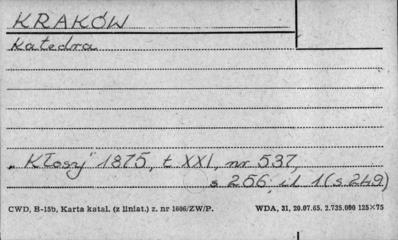 KRAKÓW
Katedra
„Kłosy" 1875, t XXI, nr 537,
s 256, il 1 (s 249)
CWD, B-15b, Karta katal. (z liniat.) z. nr 1686/ZW/P. WDA, 31, 20.07.65. 2.735.000 125×75